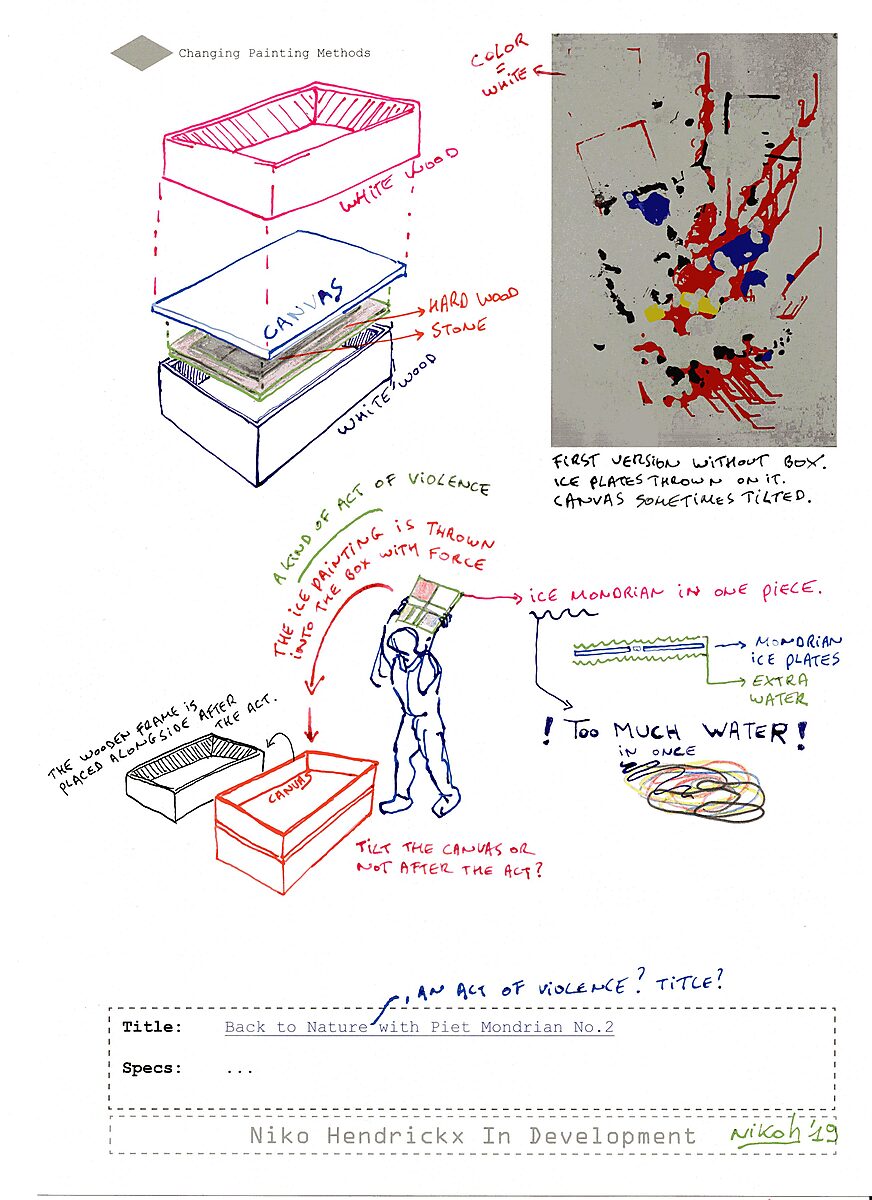 Changing Painting Methods
COLOR
=
WHITE
WHITE WOOD
CANVAS
HARD WOOD
STONE
WHITE WOOD
FIRST VERSION WITHOUT BOX.
ICE PLATES THROWN ON IT.
CANVAS SOMETIMES TILTED.
A KIND OF ACT OF VIOLENCE
THE ICE PAINTING IS THROWN
INTO THE BOX WITH FORCE
ICE MONDRIAN IN ONE PIECE.
MONDRIAN
ICE PLATES
EXTRA
WATER
! TOO MUCH WATER!
IN ONCE
THE WOODEN FRAME IS
PLACED ALONGSIDE AFTER
THE ACT.
CANVAS
TILT THE CANVAS OR
NOT AFTER THE ACT?
, AN ACT OF VIOLENCE? TITLE?
Title: Back to Nature with Piet Mondrian No.2
Specs: ...
Niko Hendrickx In Development
Nikoh '19